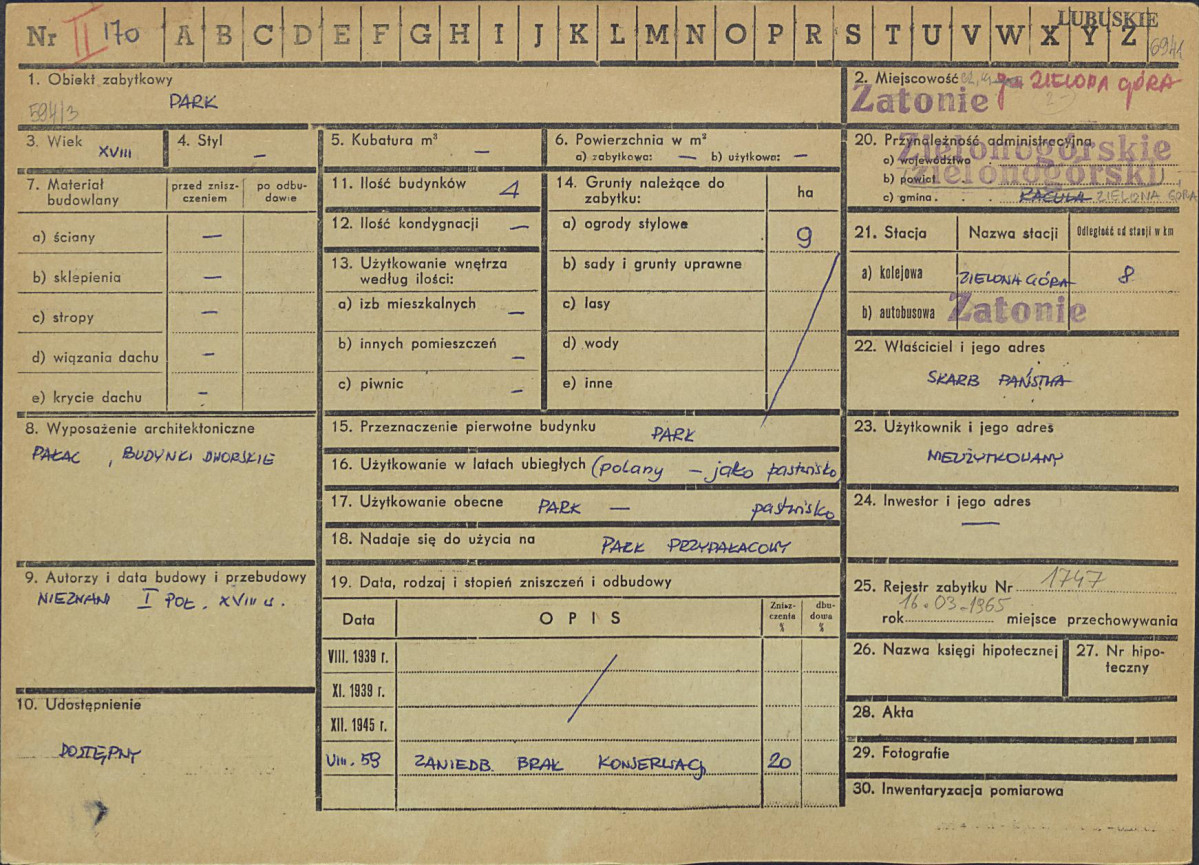 LUBUSKIE
Nr II 170 A B C D E F G H I J K L M N O P R S T U V W X Y Z
6941
1. Obiekt zabytkowy
594/3
PARK
2. Miejscowość
Zatonie ZIELONA GÓRA
3. Wiek
XVIII
4. Styl
—
5. Kubatura m³
—
6. Powierzchnia w m²
a) zabytkowa: — b) użytkowa: —
20. Przynależność administracyjna
a) województwo Zielonogórskie
b) powiat zielonogórski
c) gmina RACULA ZIELONA GÓRA
7. Materiał budowlany
przed zniszczeniem
po odbudowie
a) ściany —
b) sklepienia —
c) stropy —
d) wiązania dachu —
e) krycie dachu —
11. Ilość budynków 4
12. Ilość kondygnacji —
13. Użytkowanie wnętrza
według ilości:
a) izb mieszkalnych —
b) innych pomieszczeń —
c) piwnic —
14. Grunty należące do
zabytku:
ha
a) ogrody stylowe 9
b) sady i grunty uprawne
c) lasy
d) wody
e) inne
21. Stacja Nazwa stacji Odległość od stacji w km
a) kolejowa ZIELONA GÓRA 8
b) autobusowa Zatonie
22. Właściciel i jego adres
SKARB PAŃSTWA
8. Wyposażenie architektoniczne
PAŁAC, BUDYNKI DWORSKIE
15. Przeznaczenie pierwotne budynku PARK
16. Użytkowanie w latach ubiegłych (polany – jako pastwisko)
17. Użytkowanie obecne PARK — pastwisko
18. Nadaje się do użycia na PARK PRZYPAŁACOWY
23. Użytkownik i jego adres
NIEUŻYTKOWANY
24. Inwestor i jego adres
—
9. Autorzy i data budowy i przebudowy
NIEZNANI I POŁ. XVIII w.
10. Udostępnienie
DOSTĘPNY
19. Data, rodzaj i stopień zniszczeń i odbudowy
Data OPIS Zniszczenia % dbudowa %
VIII. 1939 r.
XI. 1939 r.
XII. 1945 r.
VIII. 59 ZANIEDB. BRAK KONSERWACJ 20
25. Rejestr zabytku Nr 1747
rok 16.03.1965 miejsce przechowywania
26. Nazwa księgi hipotecznej
27. Nr hipoteczny
28. Akta
29. Fotografie
30. Inwentaryzacja pomiarowa